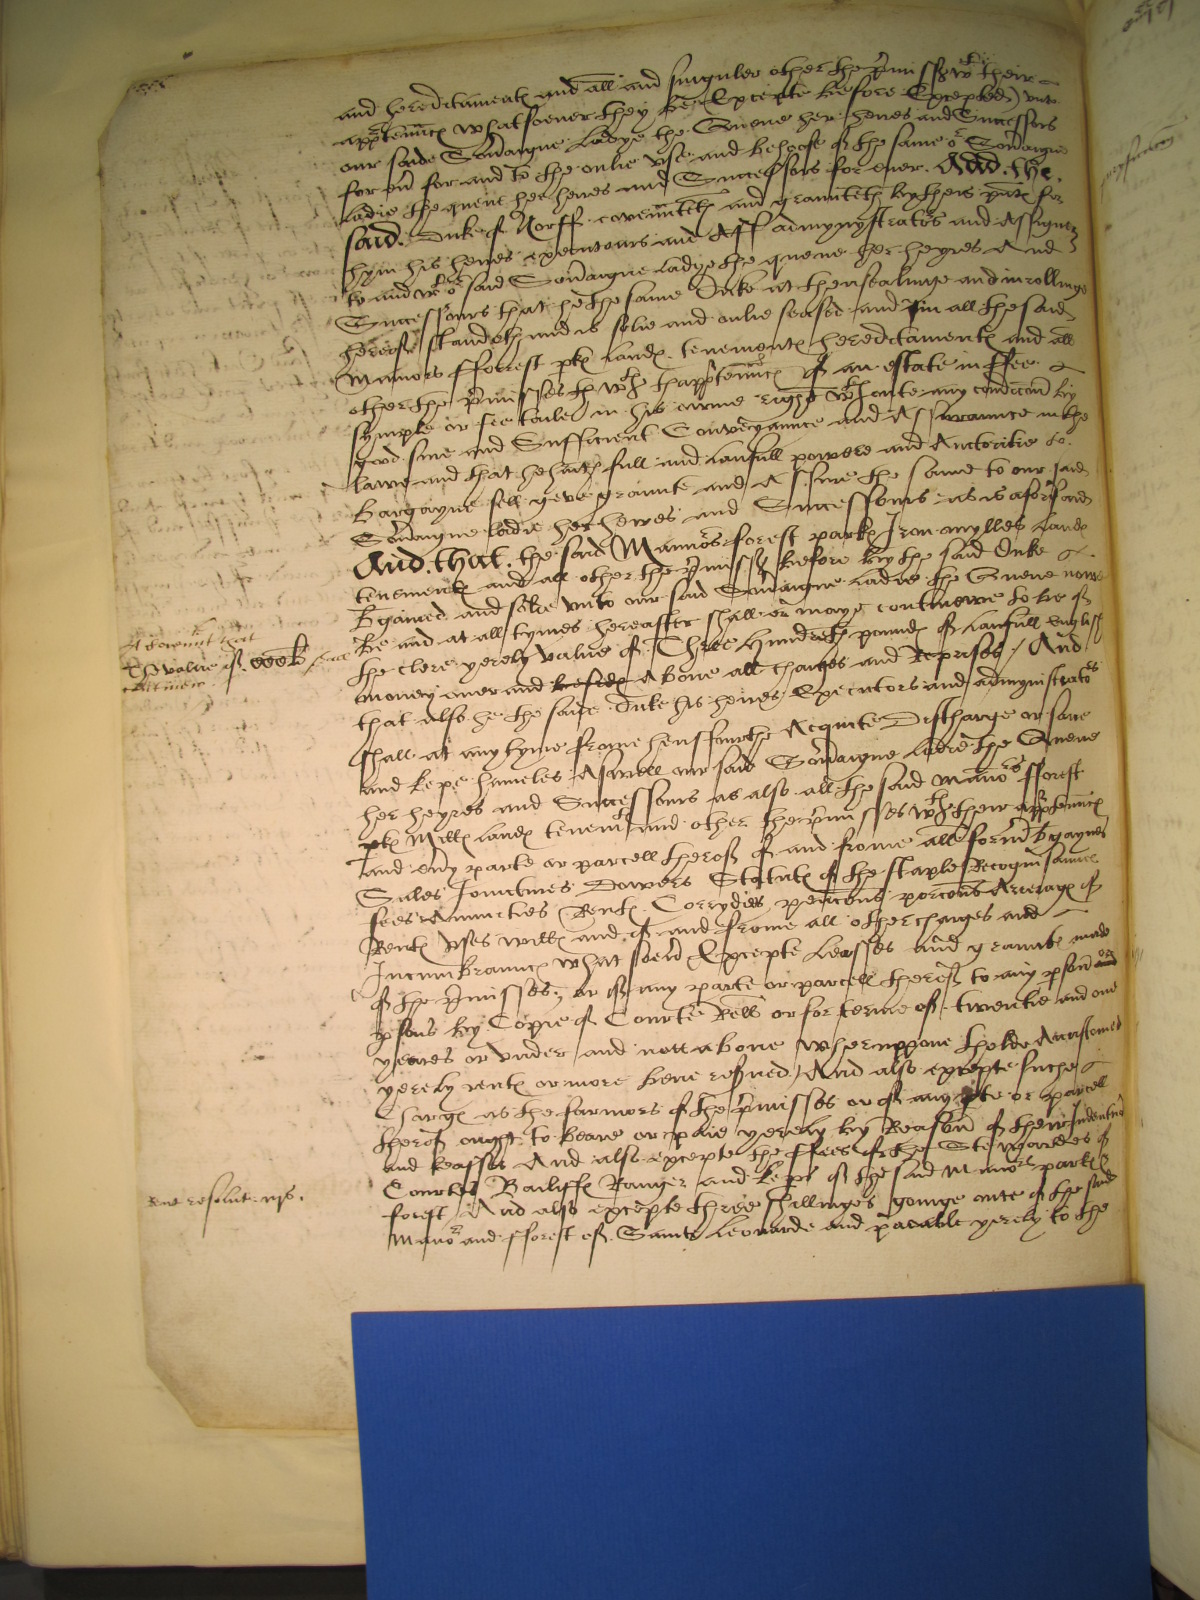 and hereditamentes and all and singuler other the premisses wth their
apprtennces whatsoeuer they be (Excepte before Excepted) vnto
our saide Soueraigne Ladye the Quene her heires and Successors
for euer for and to the onlie vse and behoofe of the same or Soueraigne
Ladie the quene her heires and Successors for euer. And. the.
said. Duke of Norff. covennteth and graunteth by theis pntes for
hym his heires executours and Ass admynystrators and Assignes
to and wth or said Soueraigne Ladye the quene her heyres And
Successours that he the same Duke at thensealinge and inrollinge
hereof standeth and is solie and onlie seased and in all the said
Manors fforrest pkes landes. tenementes hereditamentes and all
other the premisses wth thapprtennces of an estate in ffee
symple or fee taile in his owne right wthoute any condicion by
good sure and Sufficient Conveyaunce and Assuraunce in the
lawe and that he hath full and laufull powere and Auctoritie to.
bargayne sell geve graunte and Assure the same to our said
Soueraigne ladie her heires and Successours as is aforsaid
And. that. the said Mannors forest parkes Iron mylles landes
tenementes and all other the premisses before by the said Duke
Bgained and solde vnto our said Soueraigne Ladie the Quene nowe
Be and at all tymes hereafter shall or maye contynewe to be of
A Covennt that
the value of. cccli shall
contynew.
the clere yerely value of. Three Hundreth poundes of laufull englissh
money ouer and besides Aboue all charges and Reprises / And
that also he the saide Duke his heires Executors and admynistrators
shall at any tyme frome hensfourthe Acquite Discharge or save
and kepe hameles Aswell our said Soueraigne Ladie the Quene
her heyres and Successours as also all the said manors fforest
pkes Milles landes tenemtes and other the premisses wth their apprtennces
and euy parte or parcell therof of and frome all former bgaynes
Sales Jointures Dowers Statutes of the staple Recognisaunces
fees Annuities Rentes Corrydies pencons porcons Arrerages of
Rentes vses willes and of and frome all other charges and
Incumbraunces what soeuer Excepte leasses and grauntes made
of the premisses, or of any parte or parcell therof to any pson or
psons by Copie of Courte Rell or for terme of. twentie and one
yeares or vnder and nott aboue wheruppone tholde Accustomed
yerely rentes or more bene resrued) And also excepte suche
charges as the farmors of the premisses or of any pte or parcell
therof ought to beare or paie yerely by Reason of their Indentures
and leasses And also excepte the ffees of the Stewardes of
Courtes Bailiffes Ranger and kepers of the said Manors parkes
rent resolut. iijs.
forest / And also excepte three shillinges goinge oute of the said
Manor and fforest of. Saint Leonarde and paiable yerely to the